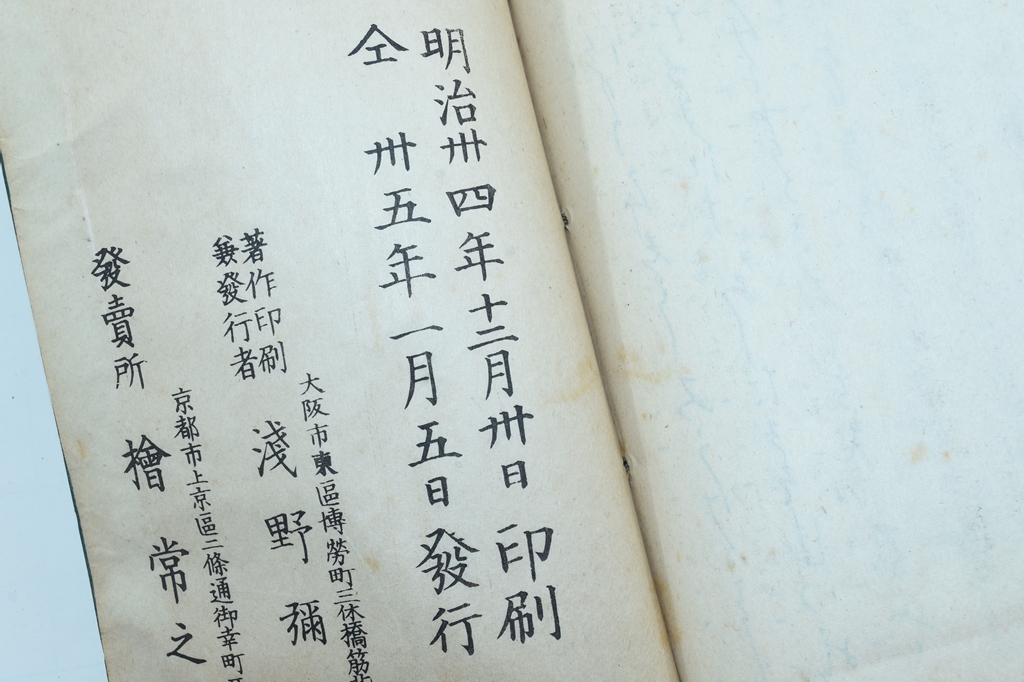 明治卅四年十二月卅日印刷
仝 卅五年一月五日發行
大阪市東區博勞町三休橋筋
著作印刷
兼發行者
淺野彌
京都市上京區三條通御幸町
發賣所 檜常之